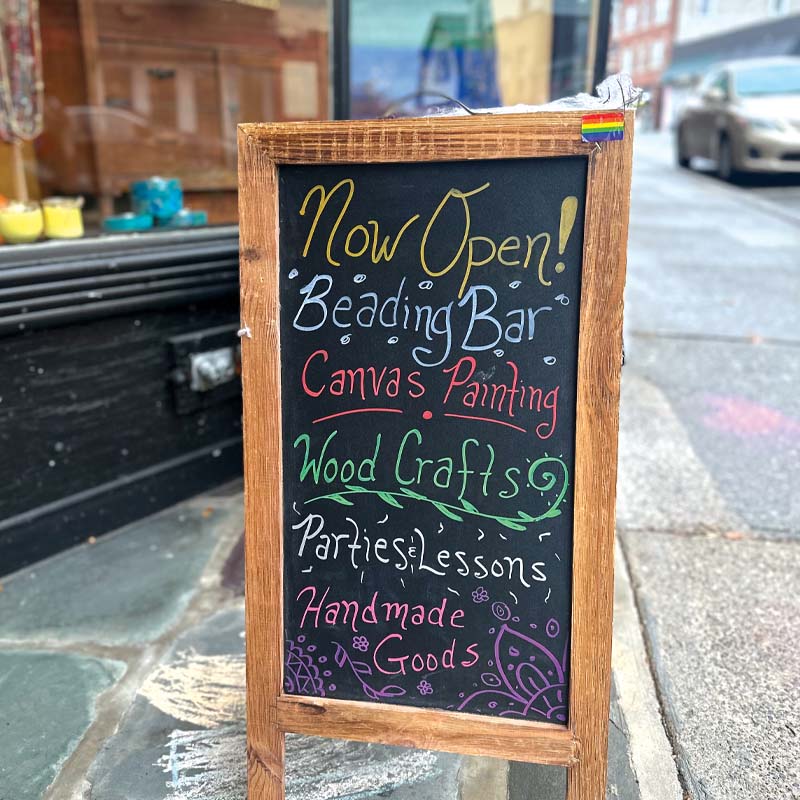 Now Open!
Beading Bar
Canvas Painting
Wood Crafts
Parties & Lessons
Handmade
Goods